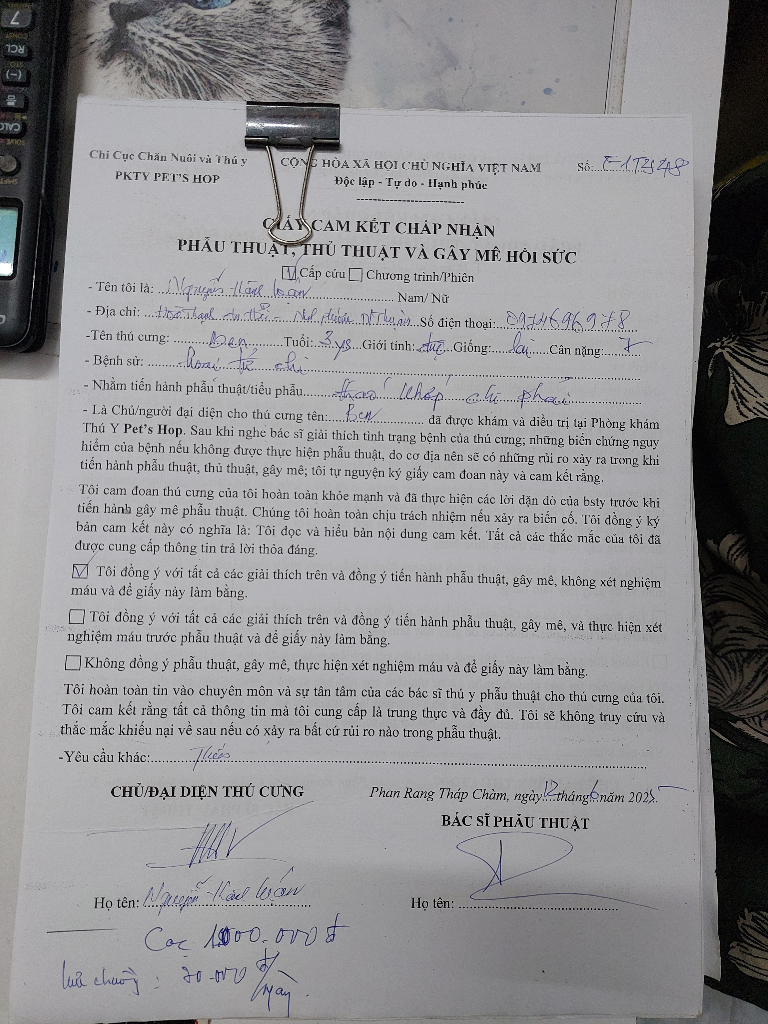 Chi Cục Chăn Nuôi và Thú y
PKTY PET'S HOP
CỘNG HÒA XÃ HỘI CHỦ NGHĨA VIỆT NAM
Độc lập - Tự do - Hạnh phúc
Số:
GIẤY CAM KẾT CHẤP NHẬN
PHẪU THUẬT, THỦ THUẬT VÀ GÂY MÊ HỒI SỨC
Cấp cứu Chương trình/Phiên
- Tên tôi là: Nguyễn Nam/ Nữ
- Địa chỉ: Số điện thoại: 0974696978
-Tên thú cưng: Ben Tuổi: 3 ys Giới tính: đực Giống: lai Cân nặng: 7
- Bệnh sử: hoại tử chi
- Nhằm tiến hành phẫu thuật/tiểu phẫu tháo khớp chi phải
- Là Chủ/người đại diện cho thú cưng tên: Ben đã được khám và điều trị tại Phòng khám
Thú Y Pet's Hop. Sau khi nghe bác sĩ giải thích tình trạng bệnh của thú cưng; những biến chứng nguy
hiểm của bệnh nếu không được thực hiện phẫu thuật, do cơ địa nên sẽ có những rủi ro xảy ra trong khi
tiến hành phẫu thuật, thủ thuật, gây mê; tôi tự nguyện ký giấy cam đoan này và cam kết rằng,
Tôi cam đoan thú cưng của tôi hoàn toàn khỏe mạnh và đã thực hiện các lời dặn dò của bsty trước khi
tiến hành gây mê phẫu thuật. Chúng tôi hoàn toàn chịu trách nhiệm nếu xảy ra biến cố. Tôi đồng ý ký
bản cam kết này có nghĩa là: Tôi đọc và hiểu bản nội dung cam kết. Tất cả các thắc mắc của tôi đã
được cung cấp thông tin trả lời thỏa đáng.
Tôi đồng ý với tất cả các giải thích trên và đồng ý tiến hành phẫu thuật, gây mê, không xét nghiệm
máu và để giấy này làm bằng.
Tôi đồng ý với tất cả các giải thích trên và đồng ý tiến hành phẫu thuật, gây mê, và thực hiện xét
nghiệm máu trước phẫu thuật và để giấy này làm bằng.
Không đồng ý phẫu thuật, gây mê, thực hiện xét nghiệm máu và để giấy này làm bằng.
Tôi hoàn toàn tin vào chuyên môn và sự tận tâm của các bác sĩ thú y phẫu thuật cho thú cưng của tôi.
Tôi cam kết rằng tất cả thông tin mà tôi cung cấp là trung thực và đầy đủ. Tôi sẽ không truy cứu và
thắc mắc khiếu nại về sau nếu có xảy ra bất cứ rủi ro nào trong phẫu thuật.
-Yêu cầu khác:
CHỦ/ĐẠI DIỆN THÚ CƯNG
Phan Rang Tháp Chàm, ngày 12 tháng 6 năm 2025
BÁC SĨ PHẪU THUẬT
Họ tên: Nguyễn
Họ tên:
Cọc 1000.000 đ
lưu chuồng: 70.000 đ/ngày